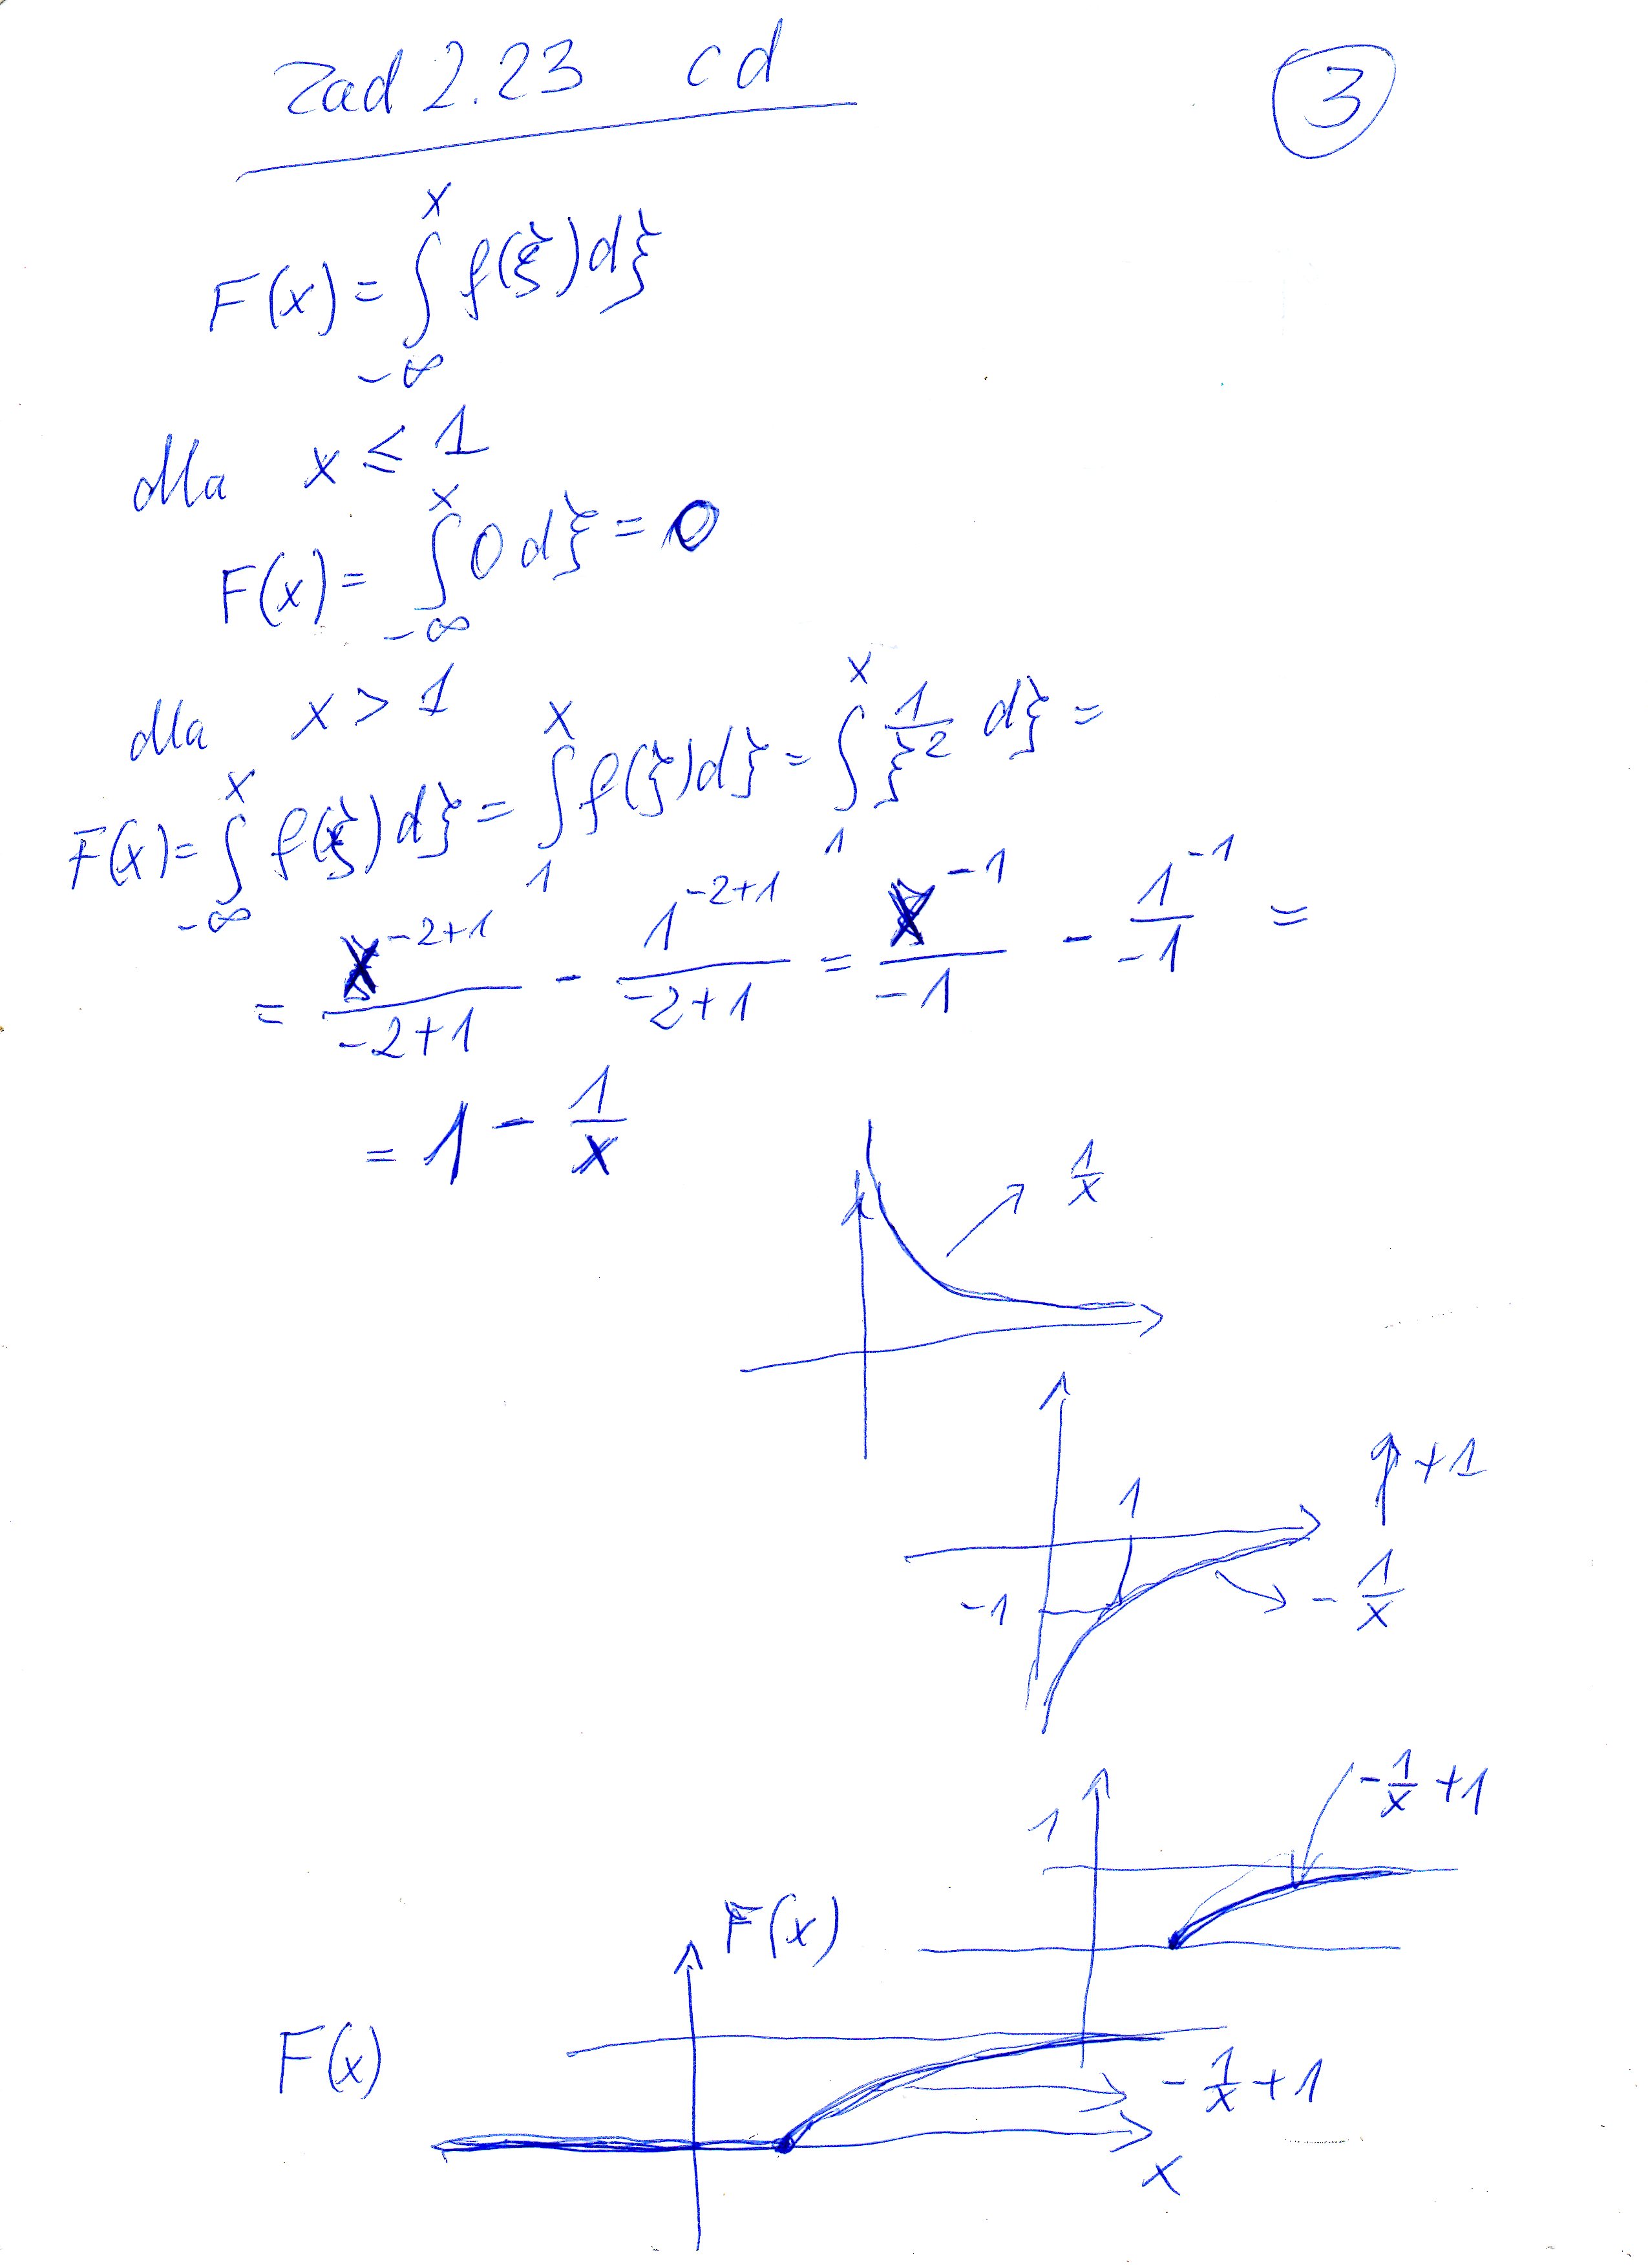 Zad 2.23 cd
3
F(x) = ∫_{-∞}^{x} f(ξ)dξ
dla x ≤ 1
F(x) = ∫_{-∞}^{x} 0 dξ = 0
dla x > 1
F(x) = ∫_{-∞}^{x} f(ξ)dξ = ∫_{1}^{x} f(ξ)dξ = ∫_{1}^{x} \frac{1}{ξ^2} dξ =
= \frac{x^{-2+1}}{-2+1} - \frac{1^{-2+1}}{-2+1} = \frac{x^{-1}}{-1} - \frac{1^{-1}}{-1} =
= 1 - \frac{1}{x}
\frac{1}{x}
+1
1
-1
- \frac{1}{x}
- \frac{1}{x} + 1
1
F(x)
F(x)
- \frac{1}{x} + 1
x